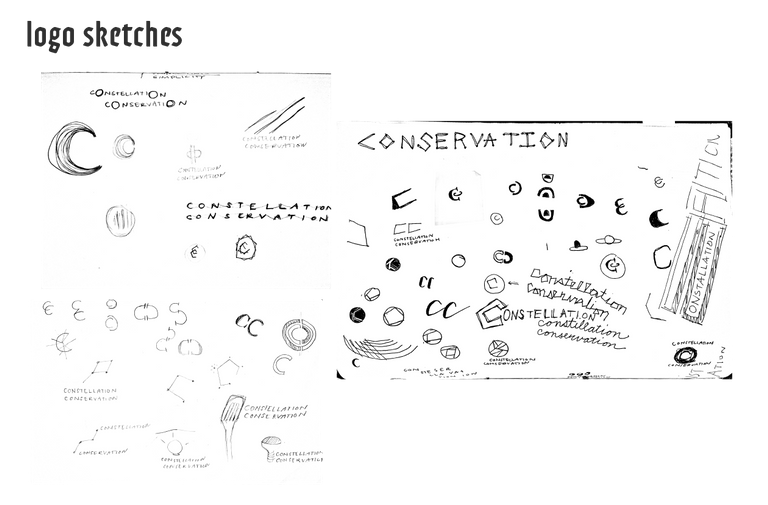 logo sketches
SIMPLICITY
CONSTELLATION
CONSERVATION
CONSTELLATION
CONSERVATION
CONSTELLATION
CONSERVATION
CONSTELLATION
CONSERVATION
CONSTELLATION
CONSERVATION
CONSTELLATION
CONSERVATION
CONSTELLATION
CONSERVATION
CONSTELLATION
CONSERVATION
CONSTELLATION
CONSERVATION
CONSERVATION
CC
CONSTELLATION
CONSERVATION
CC
CC
Constellation
Conservation
CONSTELLATION
constellation
conservation
CONSTELLATION
CONSERVATION
ONSTALLATION
CONSTELLATION
CONSERVATION